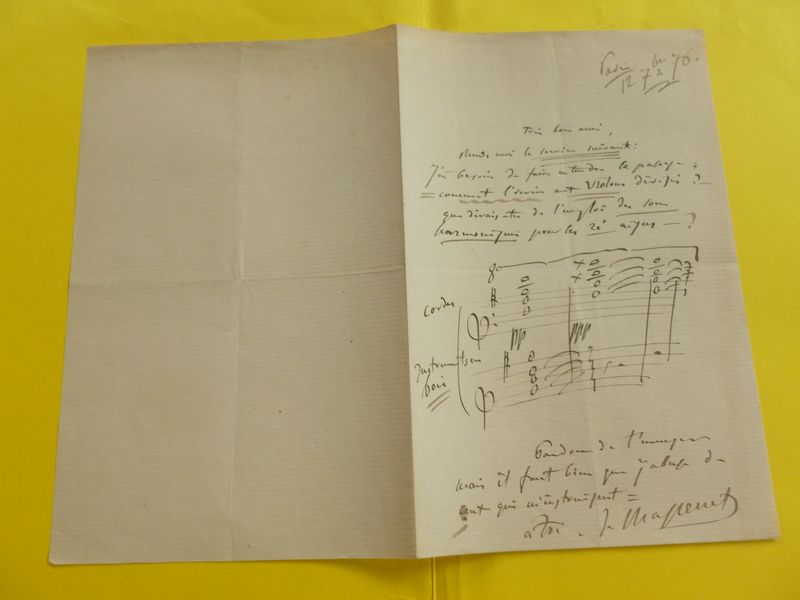 Paris
12 7bre 76.
Très bon ami,
Rends moi le service suivant:
J'ai besoin de faire entendre le passage:
comment l'écrire aux Violons divisés?
que dirais-tu de l'emploi des sons
harmoniques pour les ré aigus — ?
8a
Cordes
ppp ppp
Instruments en
bois
Pardon de t'ennuyer
mais il faut bien que j'abuse de
ceux qui m'instruisent =
à toi. J. Massenet